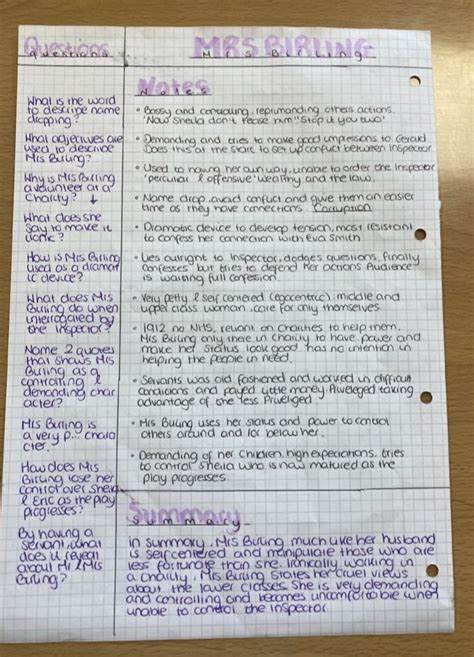 Questions
MRS BIRLING
Mrs Birling
Notes
What is the word
to describe name
dropping?
What adjectives are
used to describe
Mrs Birling?
Why is Mrs Birling
a volunteer at a
charity? ↓
What does she
say to make it
ironic?
How is Mrs Birling
used as a dramat
ic device?
What does Mrs
Birling do when
interrogated by
the inspector?
Name 2 quotes
that shows Mrs
Birling as a
controlling &
demanding char
acter?
Mrs Birling is
a very p... chara
cter.
How does Mrs
Birling lose her
control over Sheila
& Eric as the play
progresses?
By having a
servant, what
does it reveal
about Mr & Mrs
Birling?
• Bossy and controlling, reprimanding others actions.
"Now Sheila don't tease him" "Stop it you two"
• Demanding and tries to make good impressions to Gerald
Does this at the start to set up conflict between Inspector
• Used to having her own way, unable to order the Inspector
'peculiar & offensive' wealthy and the law.
• Name drop, avoid conflict and give them an easier
time as they have connections. Corruption
• Dramatic device to develop tension, most resistant
to confess her connection with Eva Smith
• Lies outright to Inspector, dodges questions, finally
confesses but tries to defend her actions Audience
is waiting full confession.
• Very petty & self centered (egocentric). middle and
upper class woman. care for only themselves.
• 1912 no NHS, reliant on charities to help them.
Mrs Birling only there in charity to have power and
make her status look good has no intention in
helping the people in need.
• Servants was old fashioned and worked in difficult
conditions and payed little money. Priveleged taking
advantage of the less Priveliged
• Mrs Birling uses her status and power to control
others around and for below her.
• Demanding of her children, high expectations. tries
to control Sheila who is now matured as the
play progresses.
Summary
In summary, Mrs Birling much like her husband
is self centered and manipulate those who are
less fortunate than she. Ironically working in
a charity. Mrs Birling states her cruel views
about the lower classes. She is very demanding
and controlling and becomes uncomfortable when
unable to control the Inspector